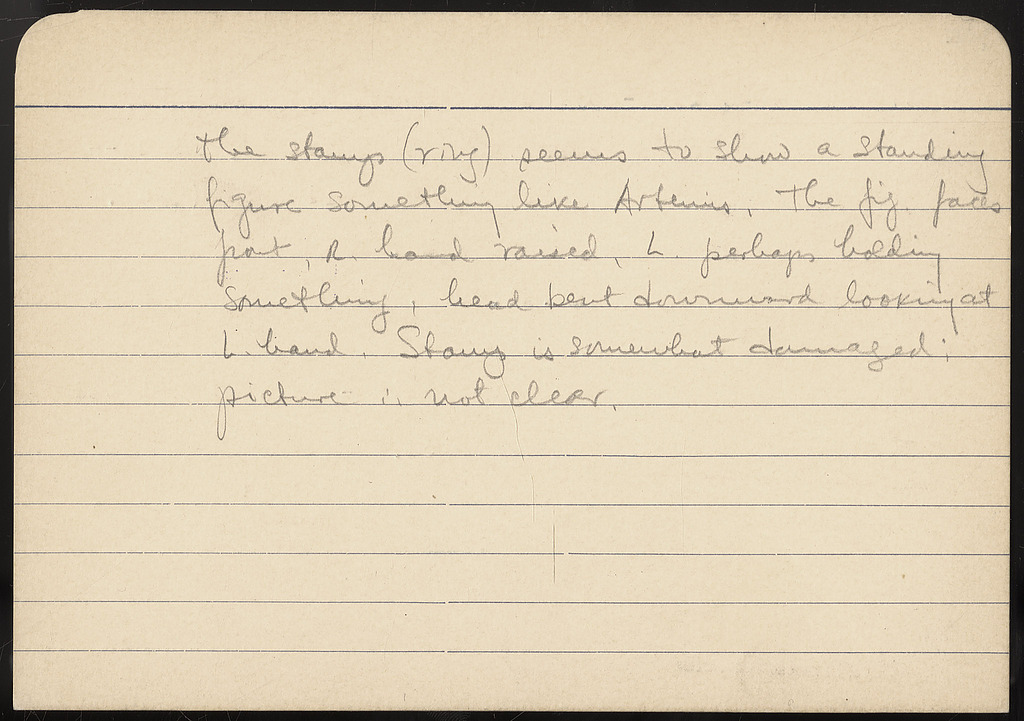 the stamp (ring) seems to show a standing
figure something like Artemis. The fig. faces
front, R. hand raised, L. perhaps holding
something, head bent downward looking at
L. hand. Stamp is somewhat damaged;
picture is not clear.